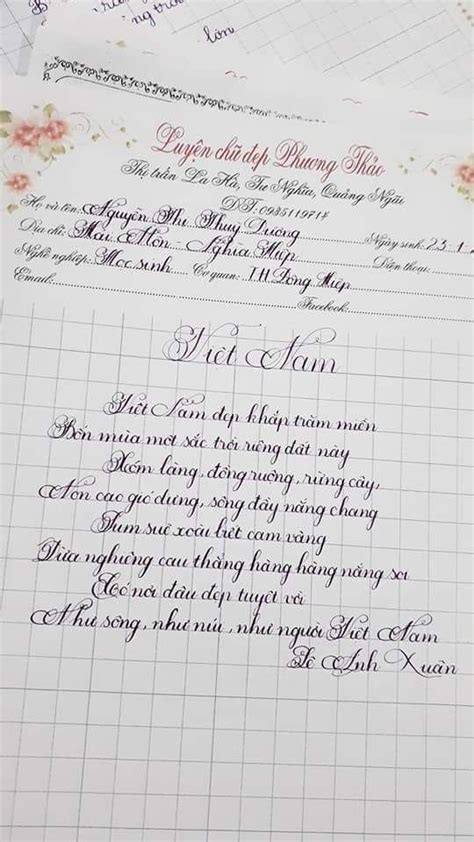 lớn
Luyện chữ đẹp Phương Thảo
Thị trấn La Hà, Tư Nghĩa, Quảng Ngãi
ĐT: 0935119714
Họ và tên: Nguyễn Thị Thuỳ Dương Ngày sinh: 23-1
Địa chỉ: Mai Hôn - Nghĩa Hiệp Điện thoại:
Nghề nghiệp: Học sinh Cơ quan: TH Đông Hiệp
Email: Facebook:
Việt Nam
Việt Nam đẹp khắp trăm miền
Bốn mùa một sắc trời riêng đất này
Xóm làng, đồng ruộng, rừng cây,
Non cao gió dựng, sông đầy nắng chang
Sum suê xoài biếc cam vàng
Dừa nghiêng cau thẳng hàng hàng nắng soi
Có nơi đâu đẹp tuyệt vời
Như sông, như núi, như người Việt Nam
Lê Anh Xuân